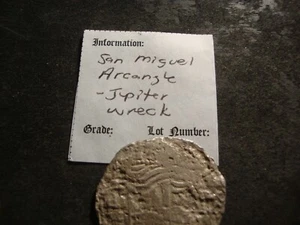 Information:
San Miguel
Arcangle
- Jupiter
wreck
Grade: Lot Number: